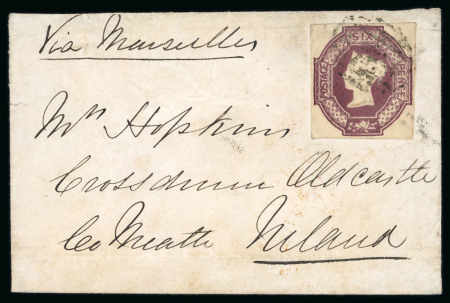 Via Marseilles
POSTAGE SIX PENCE
Mrs Hopkins
Crossdrum Oldcastle
Co Meath Ireland